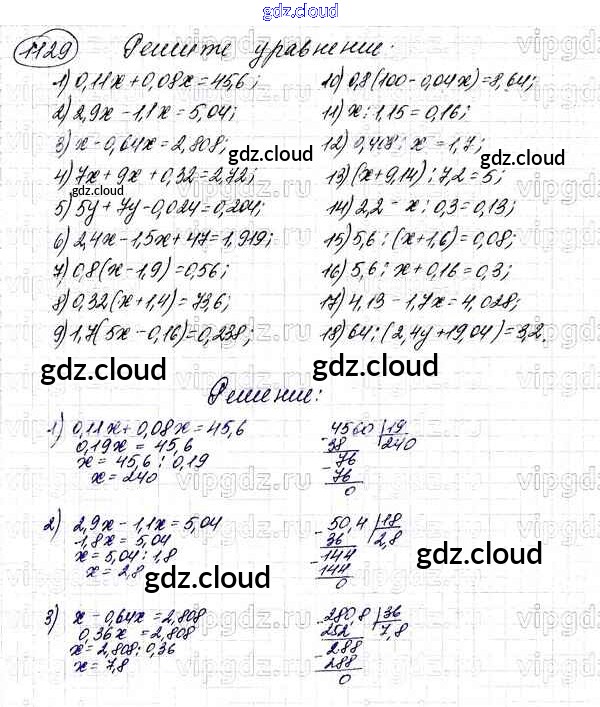 gdz.cloud
1129 Решите уравнение:
1) 0,11x + 0,08x = 45,6;
2) 2,9x - 1,1x = 5,04;
3) x - 0,64x = 2,808;
4) 7x + 9x + 0,32 = 2,72;
5) 5y + 7y - 0,024 = 0,204;
6) 2,4x - 1,5x + 47 = 1,919;
7) 0,8(x - 1,9) = 0,56;
8) 0,32(x + 1,4) = 73,6;
9) 1,7(5x - 0,16) = 0,238;
10) 0,8(100 - 0,04x) = 8,64;
11) x : 1,15 = 0,16;
12) 0,408 : x = 1,7;
13) (x + 9,14) : 7,2 = 5;
14) 2,2 - x : 0,3 = 0,13;
15) 5,6 : (x + 1,6) = 0,08;
16) 5,6 : x + 0,16 = 0,3;
17) 4,13 - 1,7x = 4,028;
18) 64 : (2,4y + 19,04) = 3,2.
gdz.cloud
gdz.cloud
gdz.cloud
gdz.cloud
gdz.cloud
gdz.cloud
Решение:
1) 0,11x + 0,08x = 45,6
0,19x = 45,6
x = 45,6 : 0,19
x = 240
4560 19
38 240
76
76
0
gdz.cloud
2) 2,9x - 1,1x = 5,04
1,8x = 5,04
x = 5,04 : 1,8
x = 2,8
50,4 18
36 2,8
144
144
0
gdz.cloud
gdz.cloud
3) x - 0,64x = 2,808
0,36x = 2,808
x = 2,808 : 0,36
x = 7,8
280,8 36
252 7,8
288
288
0
gdz.cloud